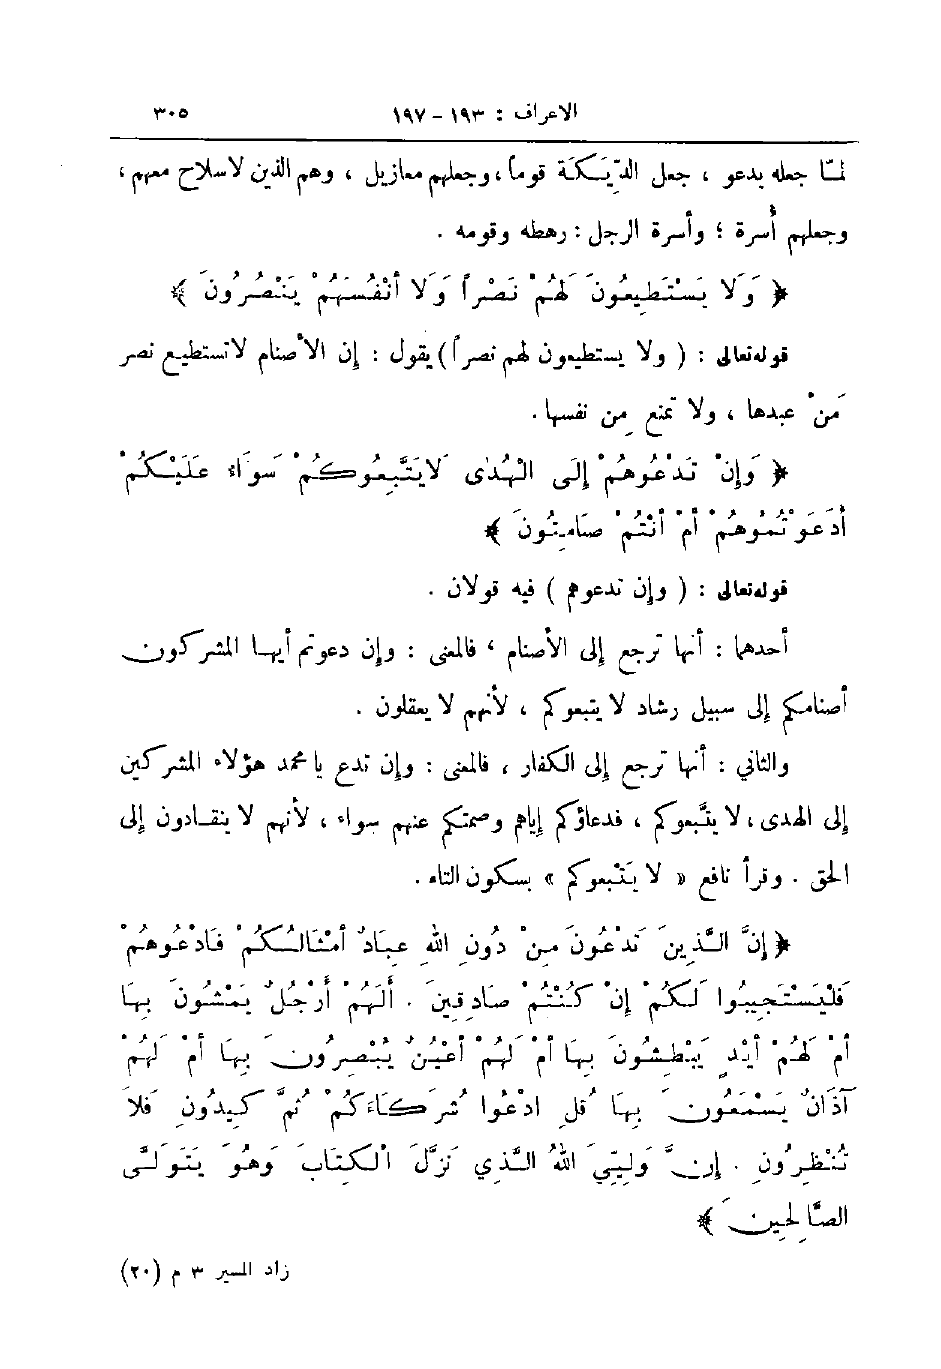 الاعراف : ١٩٣ - ١٩٧ ٣٠٥
لمّا جعله يدعو ، جعل الدِّيَكَة قوماً ، وجعلهم معازيل ، وهم الذين لاسلاح معهم ،
وجعلهم أُسرة ؛ وأسرة الرجل : رهطه وقومه .
﴿ وَلَا يَسْتَطِيعُونَ لَهُمْ نَصْراً وَلَا أَنْفُسَهُمْ يَنْصُرُونَ ﴾
قوله تعالى : ( ولا يستطيعون لهم نصراً ) يقول : إن الأصنام لاتستطيع نصر
مَنْ عبدها ، ولا تمنع مِن نفسها .
﴿ وَإِنْ تَدْعُوهُمْ إِلَى الْهُدَى لَايَتَّبِعُوكُمْ سَوَاءٌ عَلَيْكُمْ
أَدَعَوْتُمُوهُمْ أَمْ أَنْتُمْ صَامِتُونَ ﴾
قوله تعالى : ( وإن تدعوهم ) فيه قولان .
أحدهما : أنها ترجع إلى الأصنام ، فالمعنى : وإن دعوتم أيها المشركون
أصنامكم إلى سبيل رشاد لا يتبعوكم ، لأنهم لا يعقلون .
والثاني : أنها ترجع إلى الكفار ، فالمعنى : وإن تدع يا محمد هؤلاء المشركين
إلى الهدى ، لا يتَّبعوكم ، فدعاؤكم إياهم وصمتكم عنهم سواء ، لأنهم لا ينقادون إلى
الحق . وقرأ نافع « لا يَتْبعوكم » بسكون التاء .
﴿ إِنَّ الَّذِينَ تَدْعُونَ مِنْ دُونِ اللهِ عِبَادٌ أَمْثَالُكُمْ فَادْعُوهُمْ
فَلْيَسْتَجِيبُوا لَكُمْ إِنْ كُنْتُمْ صَادِقِينَ . أَلَهُمْ أَرْجُلٌ يَمْشُونَ بِهَا
أَمْ لَهُمْ أَيْدٍ يَبْطِشُونَ بِهَا أَمْ لَهُمْ أَعْيُنٌ يُبْصِرُونَ بِهَا أَمْ لَهُمْ
آذَانٌ يَسْمَعُونَ بِهَا قُلِ ادْعُوا شُرَكَاءَكُمْ ثُمَّ كِيدُونِ فَلَا
تُنْظِرُونِ . إِنَّ وَلِيِّيَ اللهُ الَّذِي نَزَّلَ الْكِتَابَ وَهُوَ يَتَوَلَّى
الصَّالِحِينَ ﴾
زاد المسير ٣ م (٢٠)